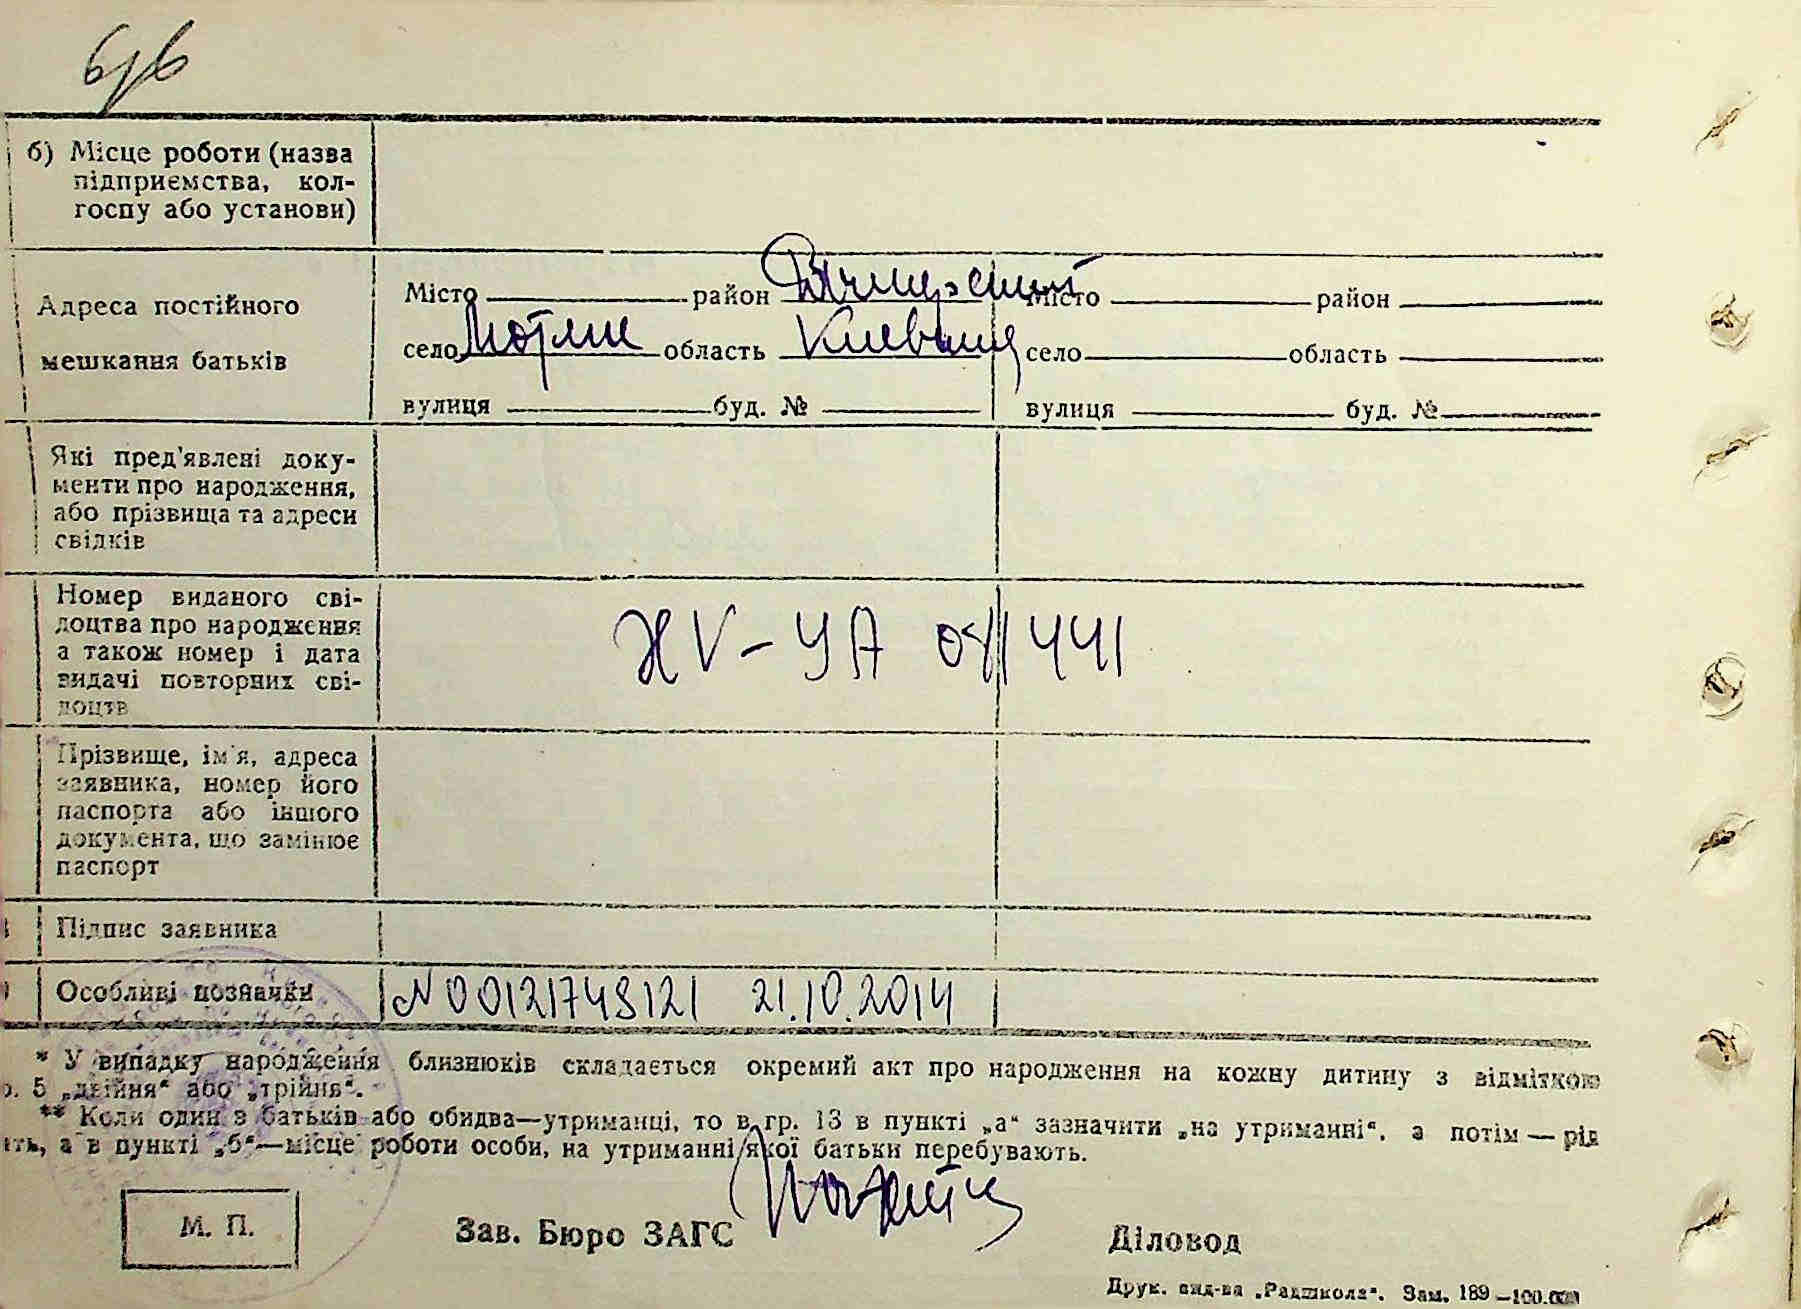 б) Місце роботи (назва
підприємства, кол-
госпу або установи)
Адреса постійного
мешкання батьків
Місто район Місто район
село область село область
вулиця буд. № вулиця буд. №
Які пред'явлені доку-
менти про народження,
або прізвища та адреси
свідків
Номер виданого сві-
доцтва про народження
а також номер і дата
видачі повторних сві-
доцтв
УА 011441
Прізвище, ім'я, адреса
заявника, номер його
паспорта або іншого
документа, що замінює
паспорт
Підпис заявника
Особливі позначки
N 00121748121 21.10.2014
* У випадку народження близнюків складається окремий акт про народження на кожну дитину з відміткою
р. 5 „двійня“ або „трійня“.
** Коли один з батьків або обидва—утриманці, то в гр. 13 в пункті „а“ зазначити „на утриманні“, а потім — рід
ять, а в пункті „б“—місце роботи особи, на утриманні якої батьки перебувають.
М. П.
Зав. Бюро ЗАГС
Діловод
Друк. вид-ва „Радшкола“. Зам. 189—100.000